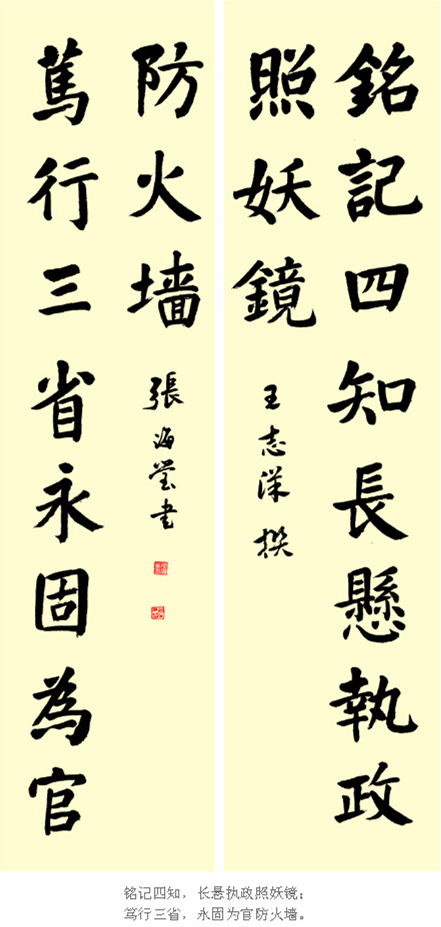 銘記四知長懸執政
照妖鏡
王志 撰
篤行三省永固為官
防火墙
張海瑩书
铭记四知，长悬执政照妖镜；
笃行三省，永固为官防火墙。